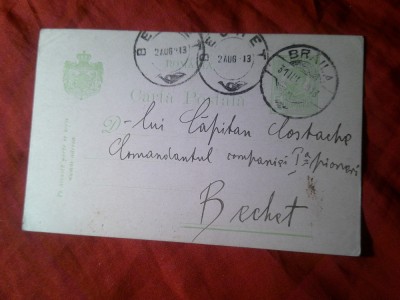 BECHET
2 AUG 13
BECHET
2 AUG 13
BRAILA
Carta Postala
D-lui Căpitan Costache
Comandantul companiei I-a pioneri
Bechet